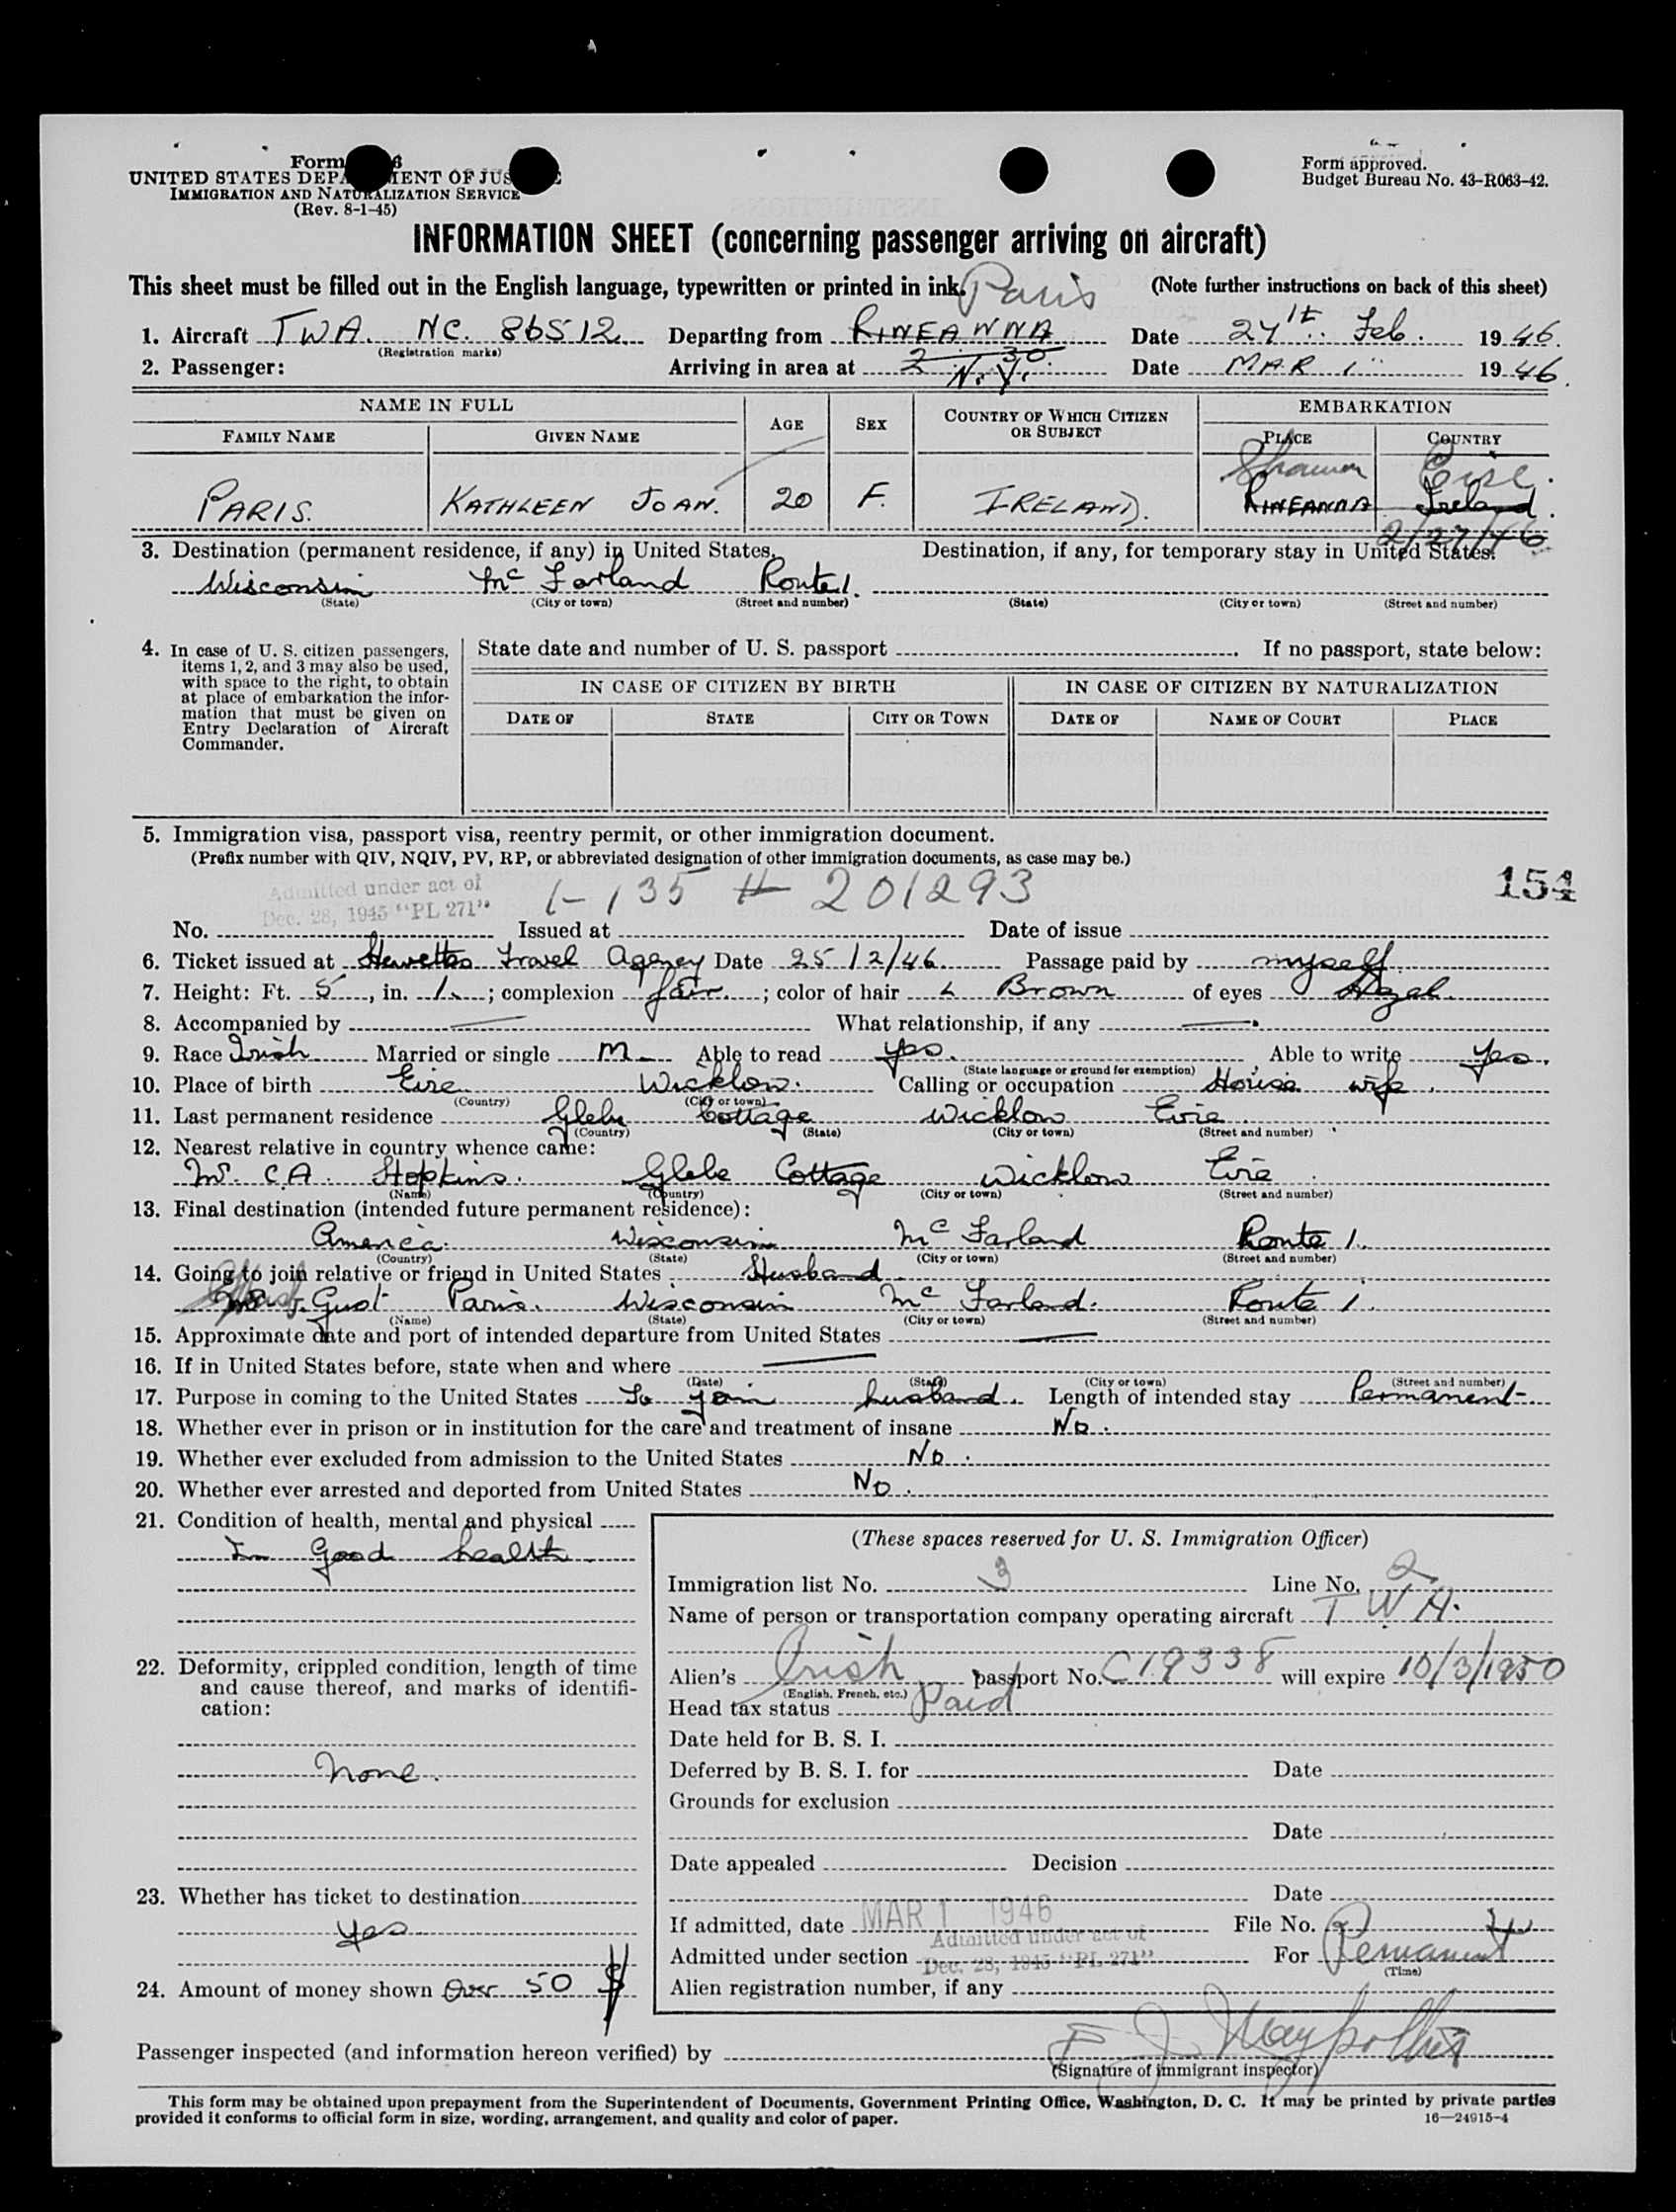 Form
UNITED STATES DEPARTMENT OF JUSTICE
IMMIGRATION AND NATURALIZATION SERVICE
(Rev. 8-1-45)
Form approved.
Budget Bureau No. 43-R063-42.
INFORMATION SHEET (concerning passenger arriving on aircraft)
This sheet must be filled out in the English language, typewritten or printed in ink. Paris (Note further instructions on back of this sheet)
1. Aircraft TWA. NC. 86512 Departing from RINEANNA Date 27 Feb. 1946.
(Registration marks)
2. Passenger: Arriving in area at 2 30 N.Y. Date MAR 1 1946.
NAME IN FULL AGE SEX COUNTRY OF WHICH CITIZEN OR SUBJECT EMBARKATION
FAMILY NAME GIVEN NAME PLACE COUNTRY
Shannon Eire.
PARIS. KATHLEEN JOAN. 20 F. IRELAND. RINEANNA Ireland.
2/27/46
3. Destination (permanent residence, if any) in United States. Destination, if any, for temporary stay in United States:
Wisconsin Mc Farland Route 1.
(State) (City or town) (Street and number) (State) (City or town) (Street and number)
4. In case of U. S. citizen passengers, items 1, 2, and 3 may also be used, with space to the right, to obtain at place of embarkation the information that must be given on Entry Declaration of Aircraft Commander.
State date and number of U. S. passport . If no passport, state below:
IN CASE OF CITIZEN BY BIRTH IN CASE OF CITIZEN BY NATURALIZATION
DATE OF STATE CITY OR TOWN DATE OF NAME OF COURT PLACE
5. Immigration visa, passport visa, reentry permit, or other immigration document.
(Prefix number with QIV, NQIV, PV, RP, or abbreviated designation of other immigration documents, as case may be.)
Admitted under act of
Dec. 28, 1945 "PL 271"
I-135 # 201293
154
No. Issued at Date of issue
6. Ticket issued at Hewetts Travel Agency Date 25/2/46. Passage paid by myself.
7. Height: Ft. 5, in. 1.; complexion fair.; color of hair L Brown of eyes Hazel.
8. Accompanied by — What relationship, if any —.
9. Race Irish Married or single M Able to read yes. Able to write yes.
(State language or ground for exemption)
10. Place of birth Eire Wicklow. Calling or occupation House wife.
(Country) (City or town)
11. Last permanent residence Glebe Cottage Wicklow Eire.
(Country) (State) (City or town) (Street and number)
12. Nearest relative in country whence came:
Mr. C.A. Hopkins. Glebe Cottage Wicklow Eire.
(Name) (Country) (City or town) (Street and number)
13. Final destination (intended future permanent residence):
America. Wisconsin Mc Farland Route 1.
(Country) (State) (City or town) (Street and number)
14. Going to join relative or friend in United States Husband.
Gust Paris. Wisconsin Mc Farland. Route 1.
(Name) (State) (City or town) (Street and number)
15. Approximate date and port of intended departure from United States —
16. If in United States before, state when and where —
(Date) (State) (City or town) (Street and number)
17. Purpose in coming to the United States To join husband. Length of intended stay Permanent
18. Whether ever in prison or in institution for the care and treatment of insane No.
19. Whether ever excluded from admission to the United States No.
20. Whether ever arrested and deported from United States No.
21. Condition of health, mental and physical
In Good health.
22. Deformity, crippled condition, length of time and cause thereof, and marks of identification:
None.
23. Whether has ticket to destination
yes
24. Amount of money shown Over 50 $
(These spaces reserved for U. S. Immigration Officer)
Immigration list No. 3 Line No. 2
Name of person or transportation company operating aircraft TWA.
Alien's Irish passport No. C19338 will expire 10/3/1950
(English, French, etc.)
Head tax status Paid
Date held for B. S. I.
Deferred by B. S. I. for Date
Grounds for exclusion
Date
Date appealed Decision
Date
If admitted, date MAR 1 1946 File No.
Admitted under section Admitted under act of Dec. 28, 1945 "PL 271" For Permanent
(Time)
Alien registration number, if any
Passenger inspected (and information hereon verified) by
(Signature of immigrant inspector)
This form may be obtained upon prepayment from the Superintendent of Documents, Government Printing Office, Washington, D. C. It may be printed by private parties
provided it conforms to official form in size, wording, arrangement, and quality and color of paper.
16—24915-4